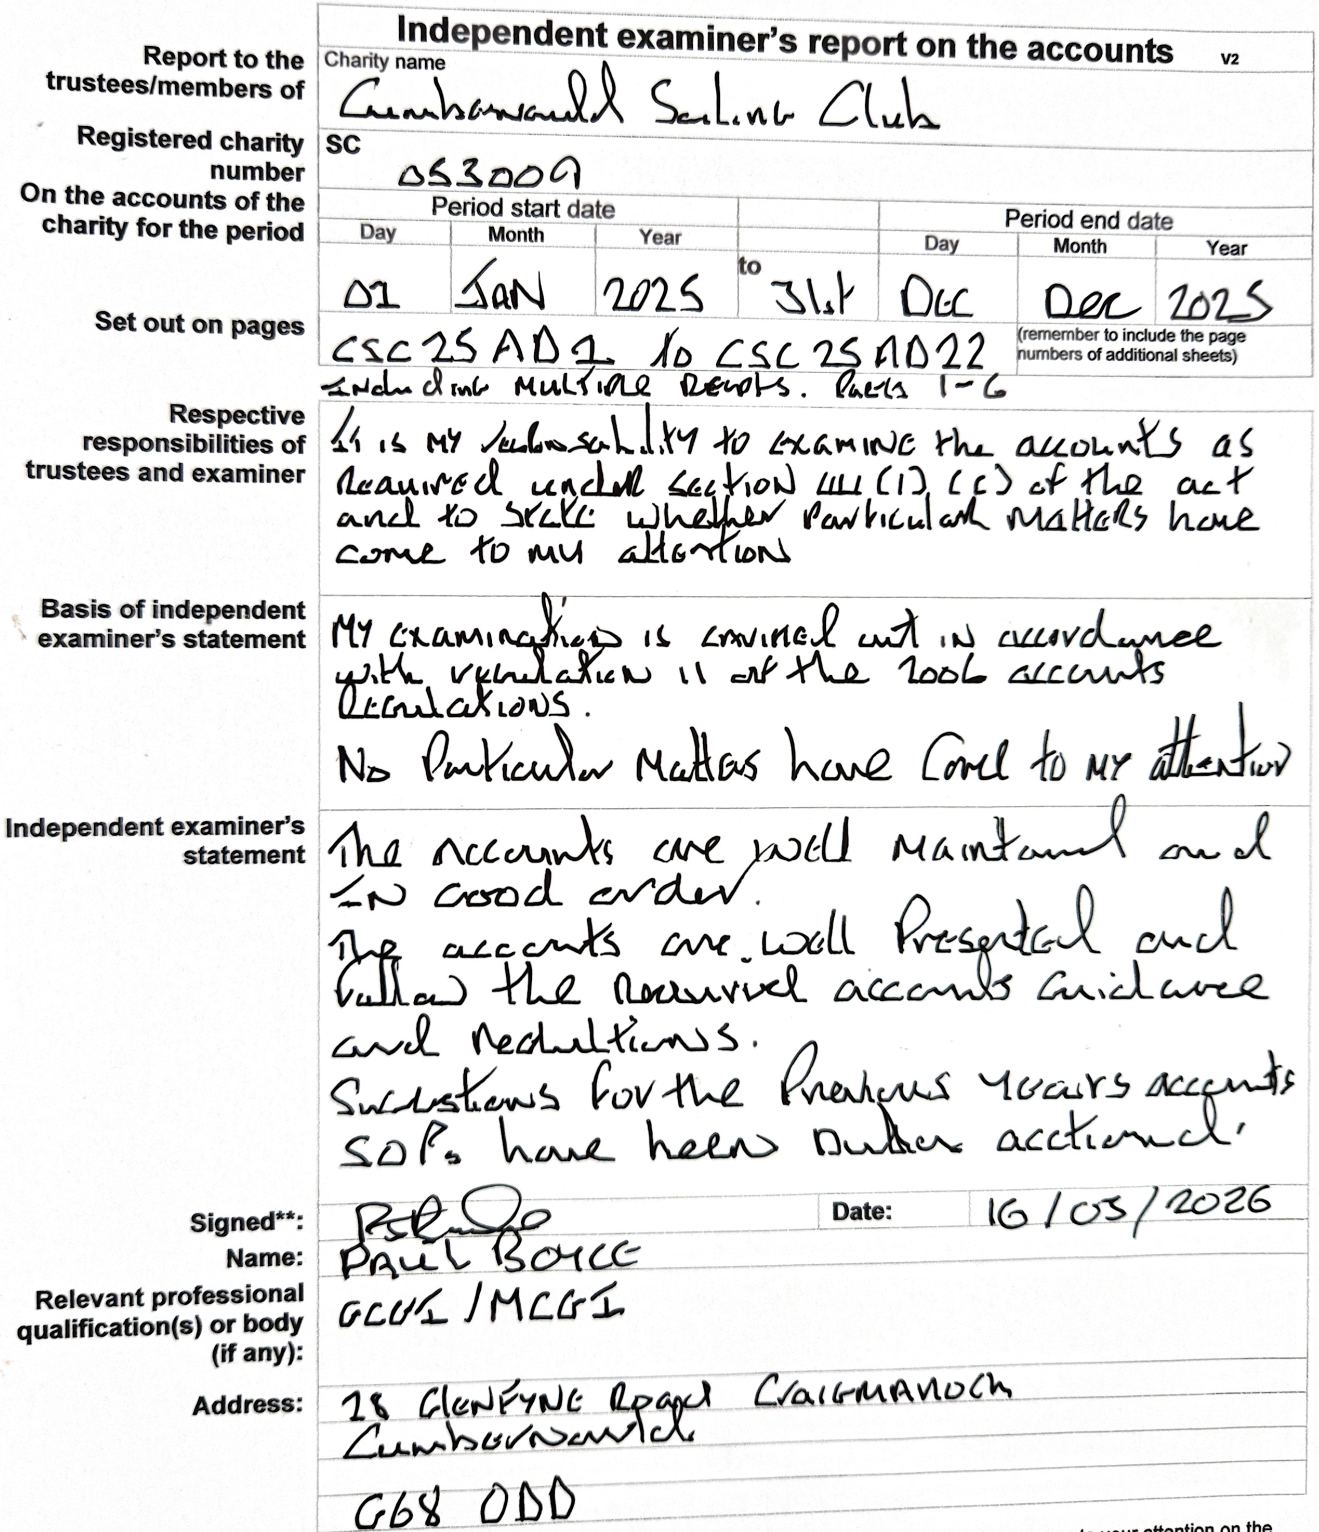 Independent examiner's report on the accounts V2
Report to the trustees/members of
Charity name
Cumbernauld Sailing Club
Registered charity number
SC
053009
On the accounts of the charity for the period
Period start date
Period end date
Day Month Year
to
Day Month Year
01 JAN 2025 31st Dec Dec 2025
Set out on pages
CSC 25 AD1 to CSC 25 AD22
(remember to include the page numbers of additional sheets)
Including MULTIPLE 1-6
Respective responsibilities of trustees and examiner
It is MY responsability to EXAMINE the accounts as
Required under section 44 (1) (c) of the act
and to state whether Particular MATTERS have
come to my attention
Basis of independent examiner's statement
MY Examination is carried out in accordance
with regulation 11 of the 2006 accounts
Regulations.
No Particular Matters have Come to MY attention
Independent examiner's statement
The Accounts are well Maintained and
IN Good order.
The accounts are well Presented and
follow the Required accounts Guidance
and
Suggestions for the Previous years accounts
SOPs have been acctioned.
Signed**:
Date: 16/03/2026
Name: PAUL BOYCE
Relevant professional qualification(s) or body (if any):
GCGI / MCGI
Address:
28 GlenFYNE Road CraigMARLOCH
Cumbernauld
G68 0DD
your attention on the